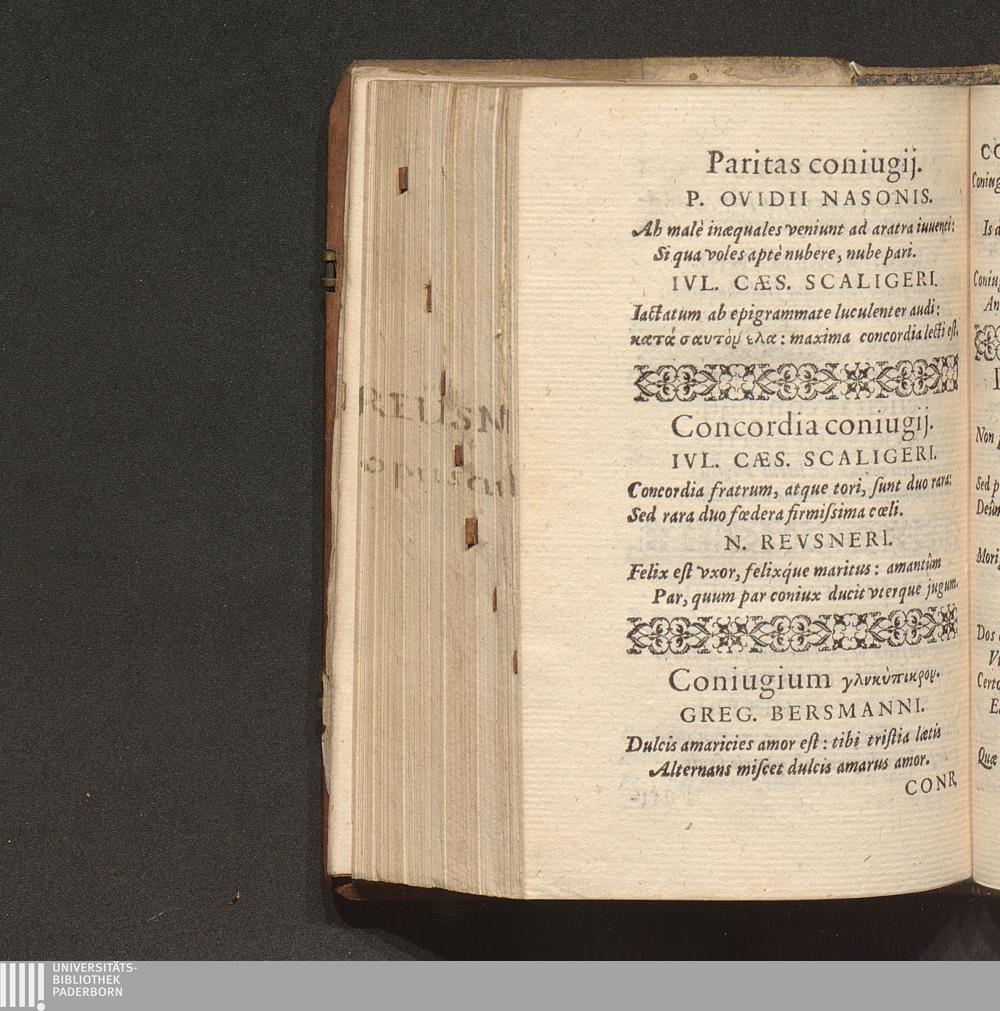 Paritas coniugij.
P. OVIDII NASONIS.
Ah malè inæquales veniunt ad aratra iuuenci:
Si qua voles aptè nubere, nube pari.
IVL. CÆS. SCALIGERI.
Iactatum ab epigrammate luculenter audi:
κατά σαυτὸν ἔλα: maxima concordia lecti est.
Concordia coniugij.
IVL. CÆS. SCALIGERI.
Concordia fratrum, atque tori, ſunt duo rara:
Sed rara duo fœdera firmiſsima cœli.
N. REVSNERI.
Felix eſt vxor, felixq́ue maritus: amantûm
Par, quum par coniux ducit vterque jugum.
Coniugium γλυκὺπικρον.
GREG. BERSMANNI.
Dulcis amaricies amor eſt: tibi triſtia lætis
Alternans miſcet dulcis amarus amor.
CONR.
REUSN
opuscul
CO
Coniug
Is
Coniug
An
Non
Sed p
Dein
Mori
Dos
Certo
Quæ
UNIVERSITÄTS-
BIBLIOTHEK
PADERBORN